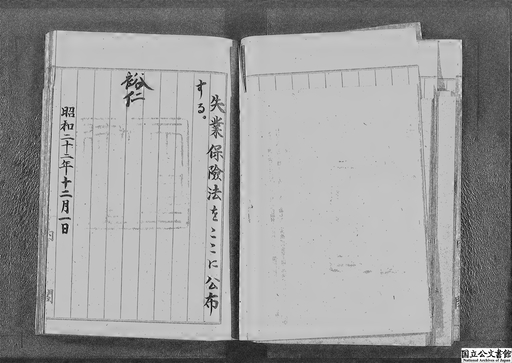 失業保險法をここに公布
する。
裕仁
昭和二十二年十二月一日
内閣
国立公文書館
National Archives of Japan